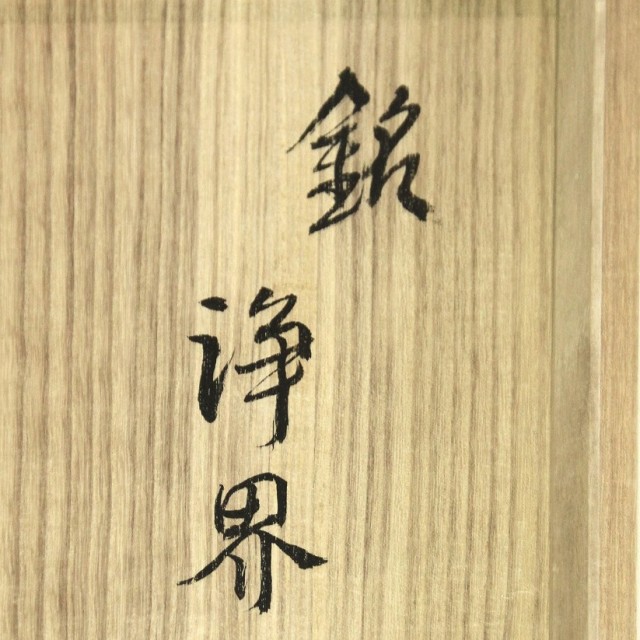 銘
浄界